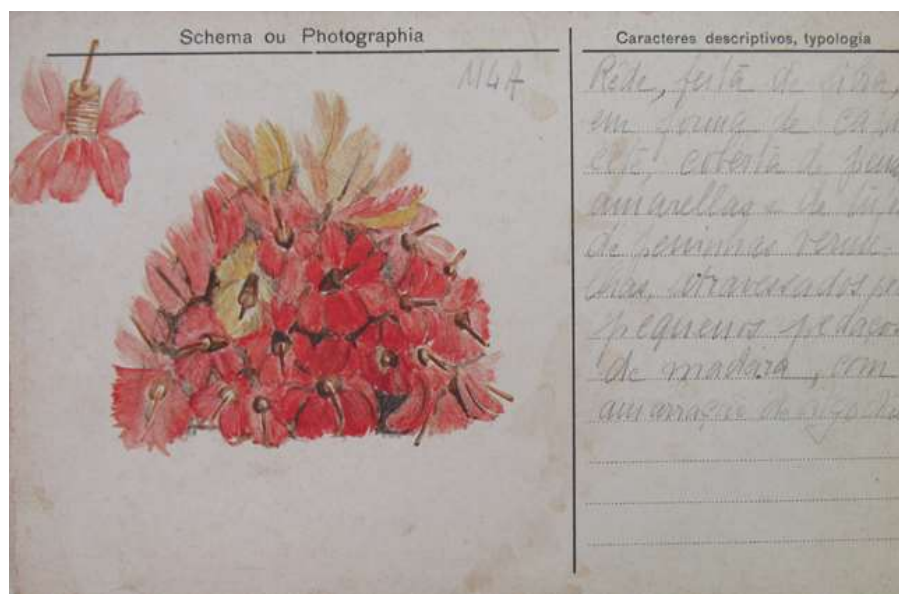 Schema ou Photographia
M4A
Caracteres descriptivos, typologia
Rêde, feita de fibra,
em forma de
está coberta de
amarellas e de
de penninhas verme-
lhas, atravessados
pequenos pedaços
de madeira, com
amarração de